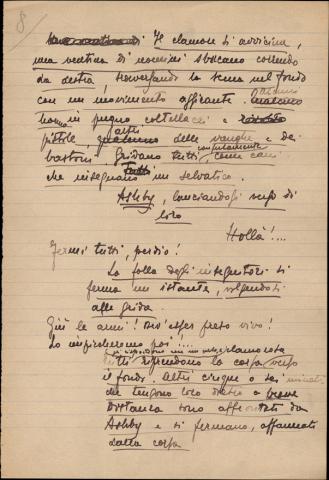 8
Il clamore si avvicina,
una ventina di uomini sbucano correndo
da destra, traversando la scena nel fondo
con un movimento aggirante. Alcuni
hanno in pugno coltellacci e
pistole altri delle vanghe e dei
bastoni. Gridano tutti confusamente, come cani
che inseguano un selvatico.
Ashby, lanciandosi verso di
loro
Hollà!...
Fermi tutti, perdio!
La folla degli inseguitori si
ferma un istante, volgendosi
alle grida.
Giù le armi! Dev'esser preso vivo!
Lo impiccheremo poi!....
Tutti riprendono la corsa verso
il fondo. Altri cinque o sei
che tengono loro dietro a breve
distanza sono affrontati da
Ashby e si fermano, affannati
dalla corsa